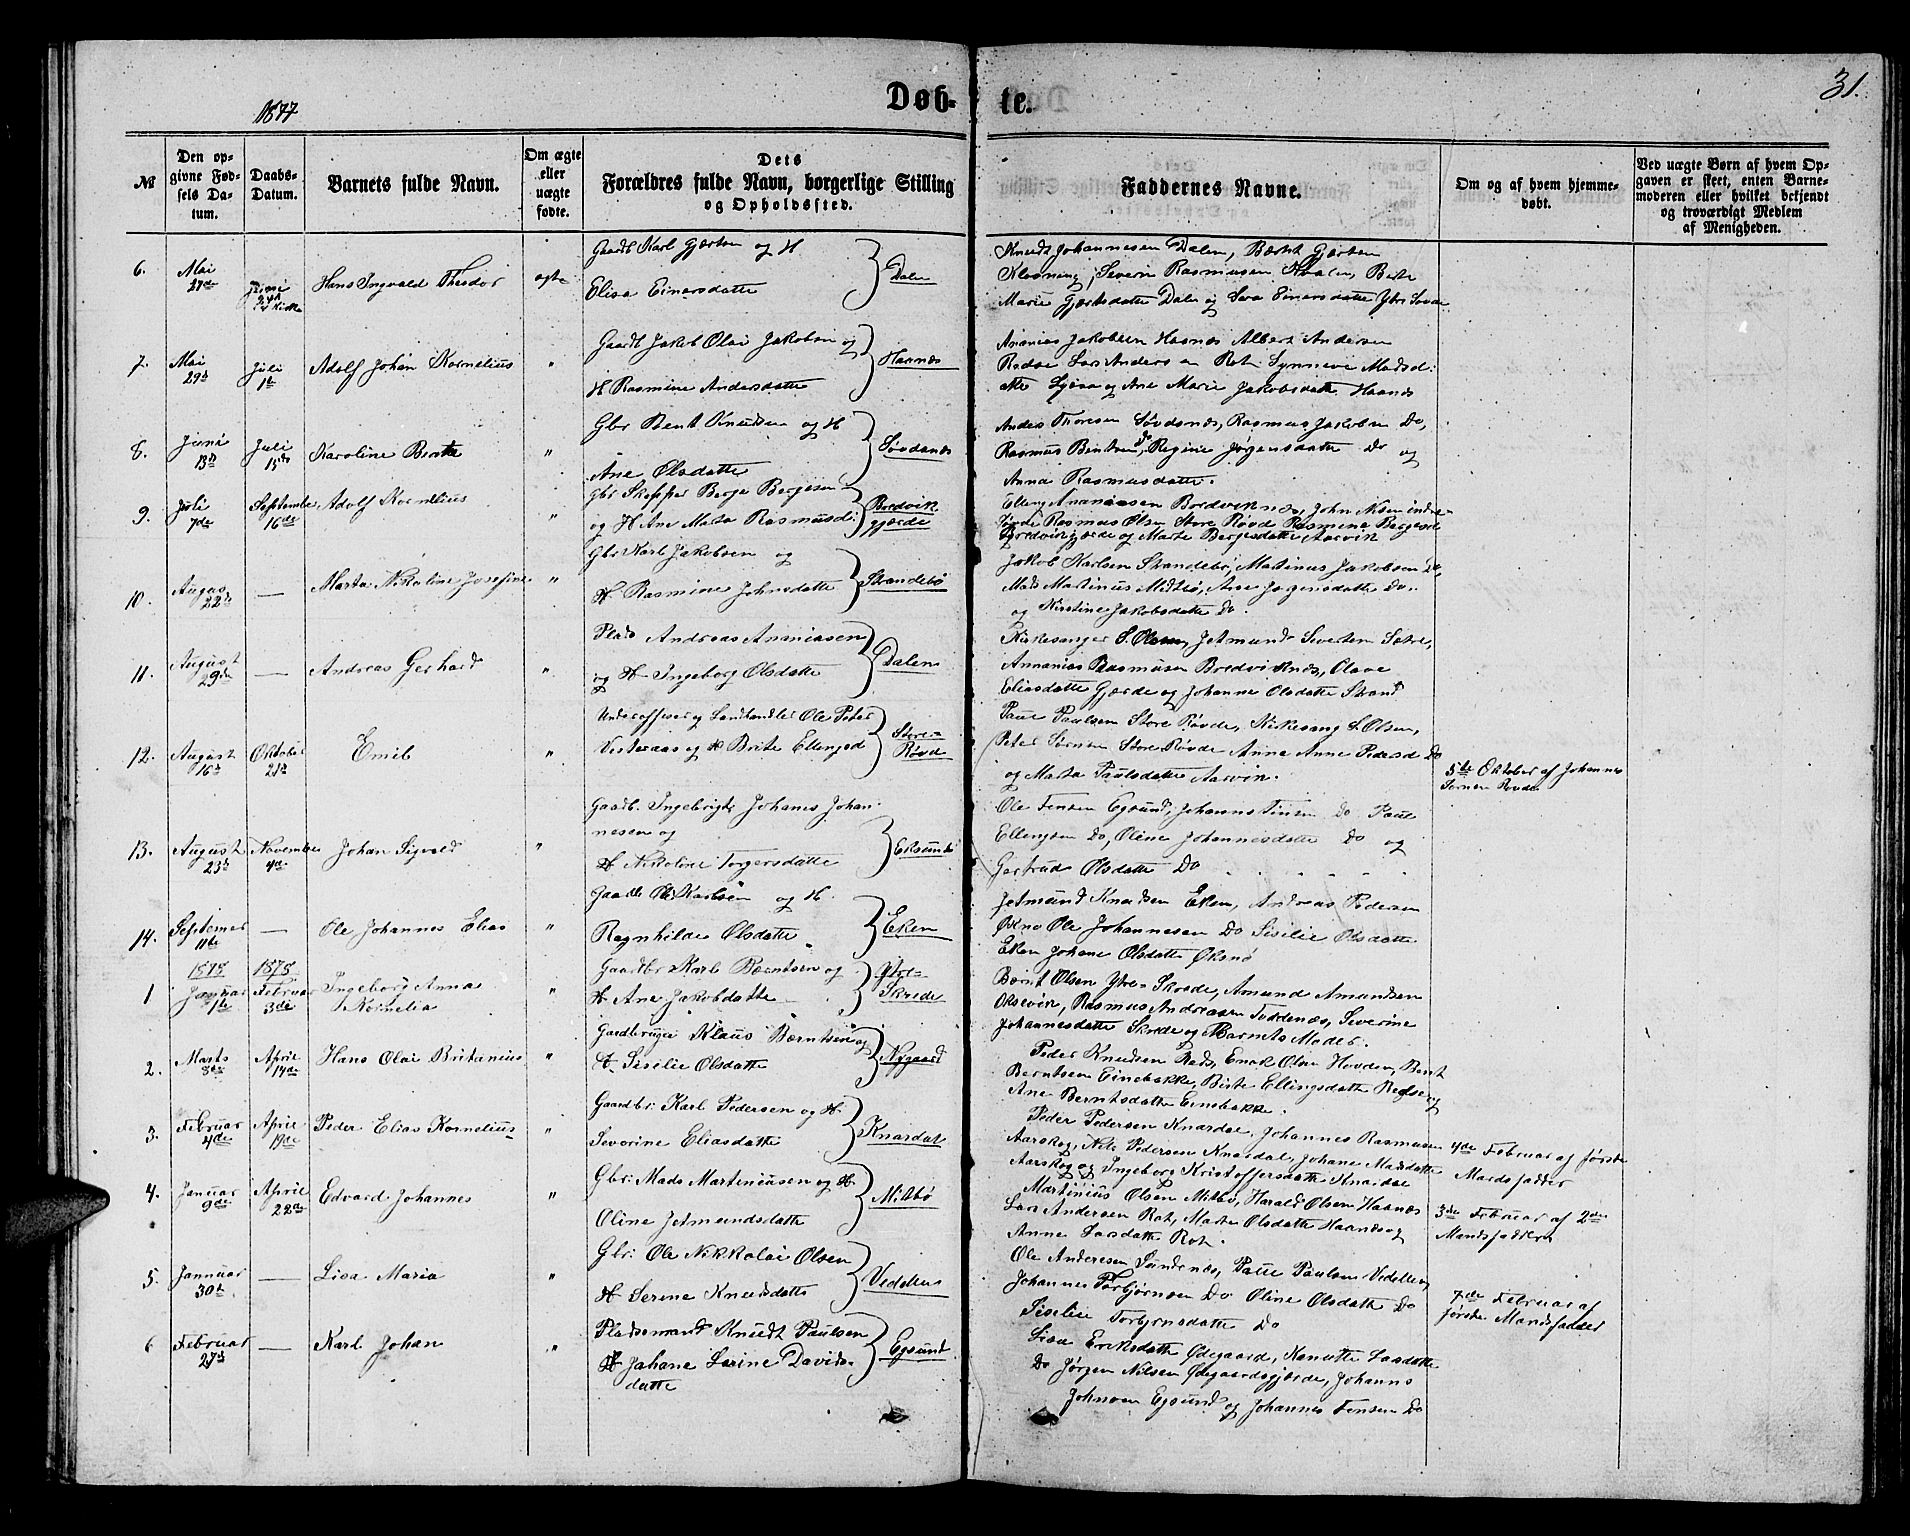 1877
Døb-
te.
31.
№
Den op-
givne Fød-
sels Da-
tum.
Daabs-
Datum.
Barnets fulde Navn.
Om ægte
eller
uægte
fødte.
Dets
Forældres fulde Navn, borgerlige Stilling
og Opholdssted.
Faddernes Navne.
Om og af hvem hjemme-
døbt.
Ved uægte Børn af hvem Op-
gaven er skeet, enten Barne-
moderen eller hvilket bekjendt
og troværdigt Medlem
af Menigheden.
6.
Mai
27de
Juni
24d
Hans Ingvald Theodor
ægte
Gaardb Karl Gjærtsen og H
Elisa Einarsdatte
Dalen
Knudt Johannesen Dalen, Bærtel Gjærtsen
Klovning, Severin Rasmusen Hvalen, Berte
Marie Gjærtsdatte Dalen og Sara Einarsdatte
7.
Mai
29d
Juli
1te
Adolf Johan Kornelius
"
Gaardb Jakob Olai Jakobsen og
H Rasmine Andersdatte
Haanæs
Ananias Jakobsen Haanæs Albert Andersen
Rødsæ Lars Andersen Rot Synneve Madsd:
atte og Ane Marie Jakobsdatte Haanæs
8.
Juni
13d
Juli
15de
Karoline Berte
"
Gbr Bent Knudsen og H
Ane Olsdatte
Søvdsnæs
Anders Thoresen Søvdsnæs, Rasmus Jakobsen Do,
Rasmus Bentsen Do, Regine Jørgensdatte Do og
Anna Rasmusdatte.
9.
Juli
7de
September
16de
Adolf Kornelius
"
Gbr Skipper Berge Bergesen
og H Ane Marta Rasmusd:
Bredvik
gjærde
Elling Ananiassen Bredviknæs, John Nilsen indre
Rasmus Olsen Store Røvd Rasmine Bergesd:
Bredvikgjærde og Marte Bergesdatte Aarvik
10.
August
22d
—
Marta Nikoline Josefine
"
Gbr Karl Jakobsen og
H. Rasmine Johnsdatte
Strandebø
Jakob Karlsen Strandebø, Martinus Jakobsen Do,
Mads Martinus Midtbø, Ane Jørgensdatte Do.
og Kirstine Jakobsdatte Do.
11.
August
29de
—
Andreas Gerhard
"
Plads Andreas Ananiasen
og H Ingeborg Olsdatte
Dalen
Kirkesanger S. Olsen, Jetmund Severten Sætre,
Annanias Rasmusen Bredviknæs, Olave
Eliasdatte Gjærde og Johanne Olsdatte Strand
12.
August
16d
Oktober
21d
Emil
"
Underofficer og Landhandler Ole Peter
Vesteraas og H Brite Ellingsd
Store-
Røvde
Paul Paulsen Store Røvde, Kirkesang S. Olsen,
Peter Sørnsen Store Røvde Anna Anne Pedersd Do
og Marta Paulsdatte Aarvik.
5te Oktober af Johannes
Sørnsen Røvde
13.
August
23d
November
4de
Johan Sigvald
"
Gaardb. Ingebrigt Johanes Johan-
nesen og
H Nikoline Torgersdatte
Eksund
Ole Jensen Egsund, Johannes Jensen Do Paul
Ellingsen Do, Oline Johannesdatte Do og
Gertrude Olsdatte Do
14.
September
11te
—
Ole Johannes Elias
"
Gaardb Ole Karlsen og H.
Ragnhilde Olsdatte
Eken
Jetmund Knudsen Eken, Andreas Pedersen
Øksnø Ole Johannesen Do Sisilie Olsdatte
Eken Johane Olsdatte Øksnø
1878
1878
1
Januar
1te
Februar
3de
Ingeborg Anna
Kornelia
"
Gaardbr Karl Bærntsen og
H Ane Jakobdatte
Ytre-
Skrede
Bernt Olsen Ytre-Skrede, Amund Amundsen
Oksevik, Rasmus Andreasen Toddenæs, Severine
Johannesdatte Skrede og Barnets Moder.
2.
Marts
8de
April
14de
Hans Olai Britanius
"
Gaardbruger Klaus Bærntsen og
H. Sisilie Olsdatte
Nygaard
Peder Knudsen Røds, Enok Olsen Hovden, Bent
Berntsen Einebakke, Birte Ellingsdatte Redse og
Ane Berntsdatte Einebakke.
3.
Februar
4de
April
19de
Peder Elias Kornelius
"
Gaardbr: Karl Pedersen og H.
Severine Eliasdatte
Knardal
Peder Pedersen Knardal, Johannes Rasmusen
Aarskog, Nils Pedersen Knardal, Johane Madsdatte
Aarskog og Ingeborg Kristoffersdatte Knardal
4de Februar af første
Mandsfadder
4.
Januar
9de
April
22de
Edvard Johannes
"
Gbr. Mads Martiniusen og H.
Oline Jetmundsdatte
Mitbø
Martinius Olsen Mitbø, Harald Olsen Haanæs
Lars Andersen Rot, Marte Olsdatte Haanæs og
Anne Larsdatte Rot.
3de Februar af 2den
Mandsfaddern
5.
Jannuar
30te
—
Lisa Maria
"
Gbr: Ole Nikkolai Olsen
H Serine Knudsdatte
Vedeltens
Ole Andersen Sundnæs, Paul Paulsen Vedelten,
Johannes Torbjørnsen Do Oline Olsdatte Do
Siselie Torbjrnsdatte Do
7de Februar af
første Mandsfadder
6
Februar
27de
—
Karl Johan
"
Pladsemand Knudt Paulsen
H Johane Serine Davids-
datte
Egsund
Lisa Eriksdatte Ødegaard, Hanutte Larsdatte
Do Jørgen Nilsen Ødegaardsgjærde, Johanns
Johnsen Egsund og Johannes Jensen Do